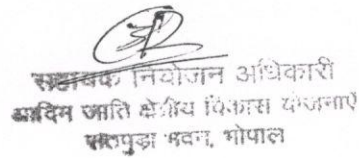 सहायक नियोजन अधिकारी
आदिम जाति क्षेत्रीय विकास योजनाएँ
सतपुड़ा भवन, भोपाल